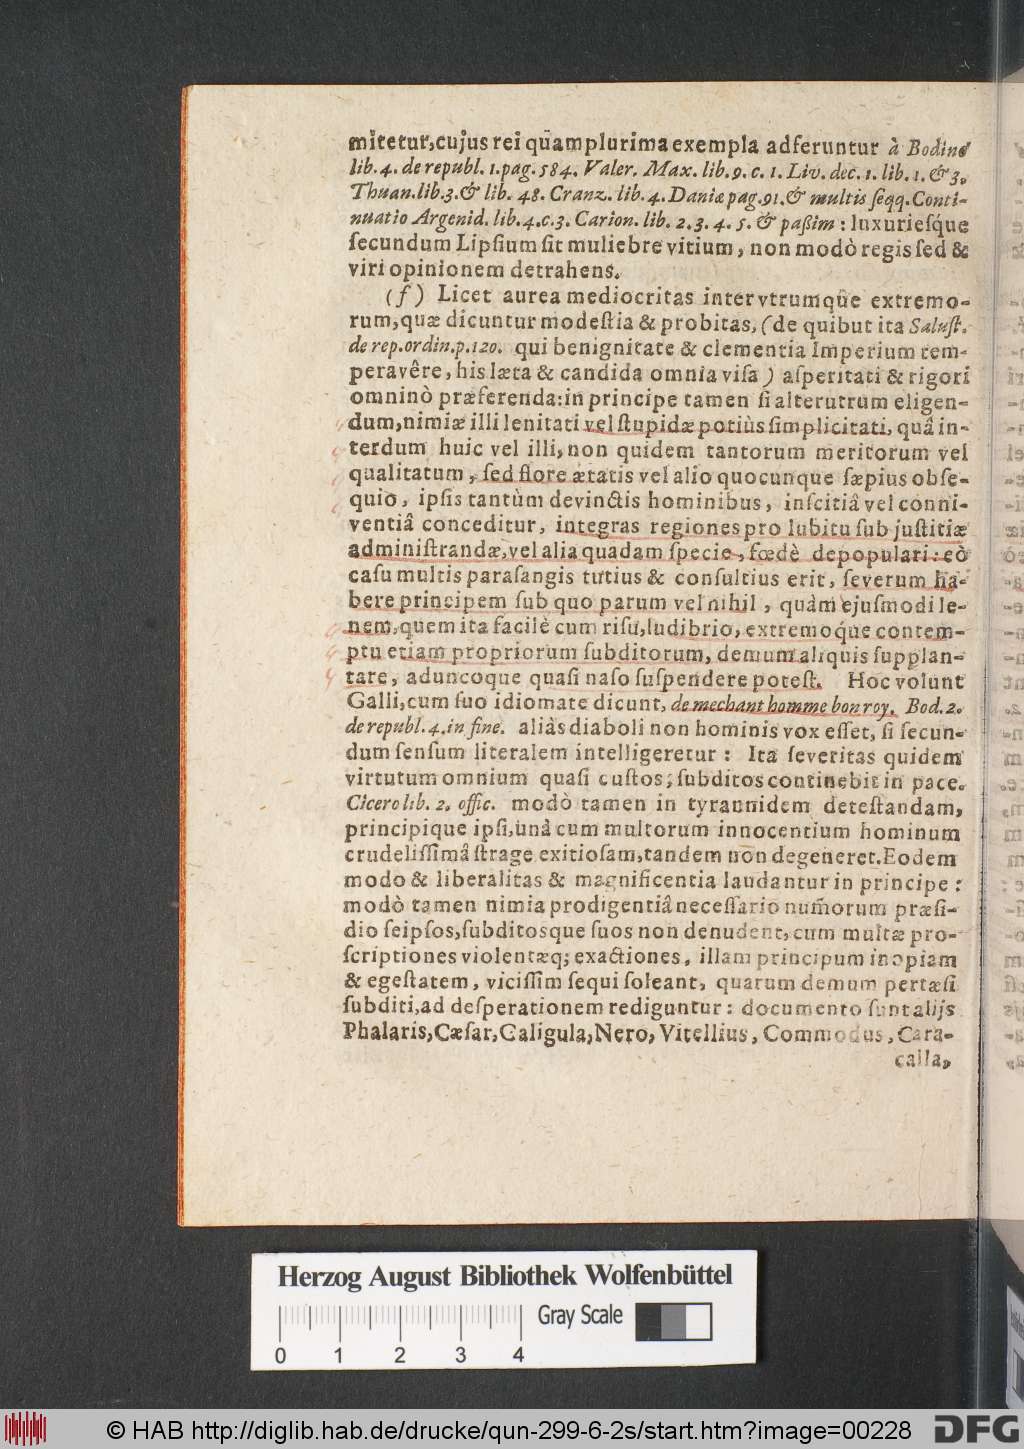 mitetur, cujus rei quàmplurima exempla adferuntur à Bodino
lib. 4. de republ. 1. pag. 584. Valer. Max. lib. 9. c. 1. Liv. dec. 1. lib. 1. & 3.
Thuan. lib. 3. & lib. 48. Cranz. lib. 4. Daniæ pag. 91. & multis ſeqq. Conti-
nuatio Argenid. lib. 4. c. 3. Carion. lib. 2. 3. 4. 5. & paßim : luxurieſq́ue
ſecundum Lipſium ſit muliebre vitium, non modò regis ſed &
viri opinionem detrahens.
(f) Licet aurea mediocritas inter vtrumque extremo-
rum, quæ dicuntur modeſtia & probitas, (de quibut ita Saluſt.
de rep. ordin. p. 120. qui benignitate & clementia Imperium tem-
peravêre, his læta & candida omnia viſa) aſperitati & rigori
omninò præferenda: in principe tamen ſi alterutrum eligen-
dum, nimiæ illi lenitati vel ſtupidæ potiùs ſimplicitati, quâ in-
terdum huic vel illi, non quidem tantorum meritorum vel
qualitatum, ſed flore ætatis vel alio quocunque ſæpius obſe-
quio, ipſis tantùm devinctis hominibus, inſcitiâ vel conni-
ventiâ conceditur, integras regiones pro lubitu ſub juſtitiæ
adminiſtrandæ, vel alia quadam ſpecie, fœdè depopulari: eò
caſu multis paraſangis tutius & conſultius erit, ſeverum ha-
bere principem ſub quo parum vel nihil, quàm ejuſmodi le-
nem, quem ita facilè cum riſu, ludibrio, extremoq́ue contem-
ptu etiam propriorum ſubditorum, demum aliquis ſupplan-
tare, aduncoque quaſi naſo ſuſpendere poteſt. Hoc volunt
Galli, cum ſuo idiomate dicunt, de mechant homme bon roy. Bod. 2.
de republ. 4. in fine. aliàs diaboli non hominis vox eſſet, ſi ſecun-
dum ſenſum literalem intelligeretur : Ita ſeveritas quidem
virtutum omnium quaſi cuſtos; ſubditos continebit in pace.
Cicero lib. 2. offic. modò tamen in tyrannidem deteſtandam,
principique ipſi, unà cum multorum innocentium hominum
crudeliſſimâ ſtrage exitioſam, tandem non degeneret. Eodem
modo & liberalitas & magnificentia laudantur in principe :
modò tamen nimia prodigentiâ neceſſario num̃orum præſi-
dio ſeipſos, ſubditosque ſuos non denudent, cum multæ pro-
ſcriptiones violentæq; exactiones, illam principum inopiam
& egeſtatem, viciſſim ſequi ſoleant, quarum demum pertæſi
ſubditi, ad deſperationem rediguntur : documento ſunt alijs
Phalaris, Cæſar, Caligula, Nero, Vitellius, Commodus, Cara-
calla,
Herzog August Bibliothek Wolfenbüttel
Gray Scale
0 1 2 3 4
© HAB http://diglib.hab.de/drucke/qun-299-6-2s/start.htm?image=00228
DFG